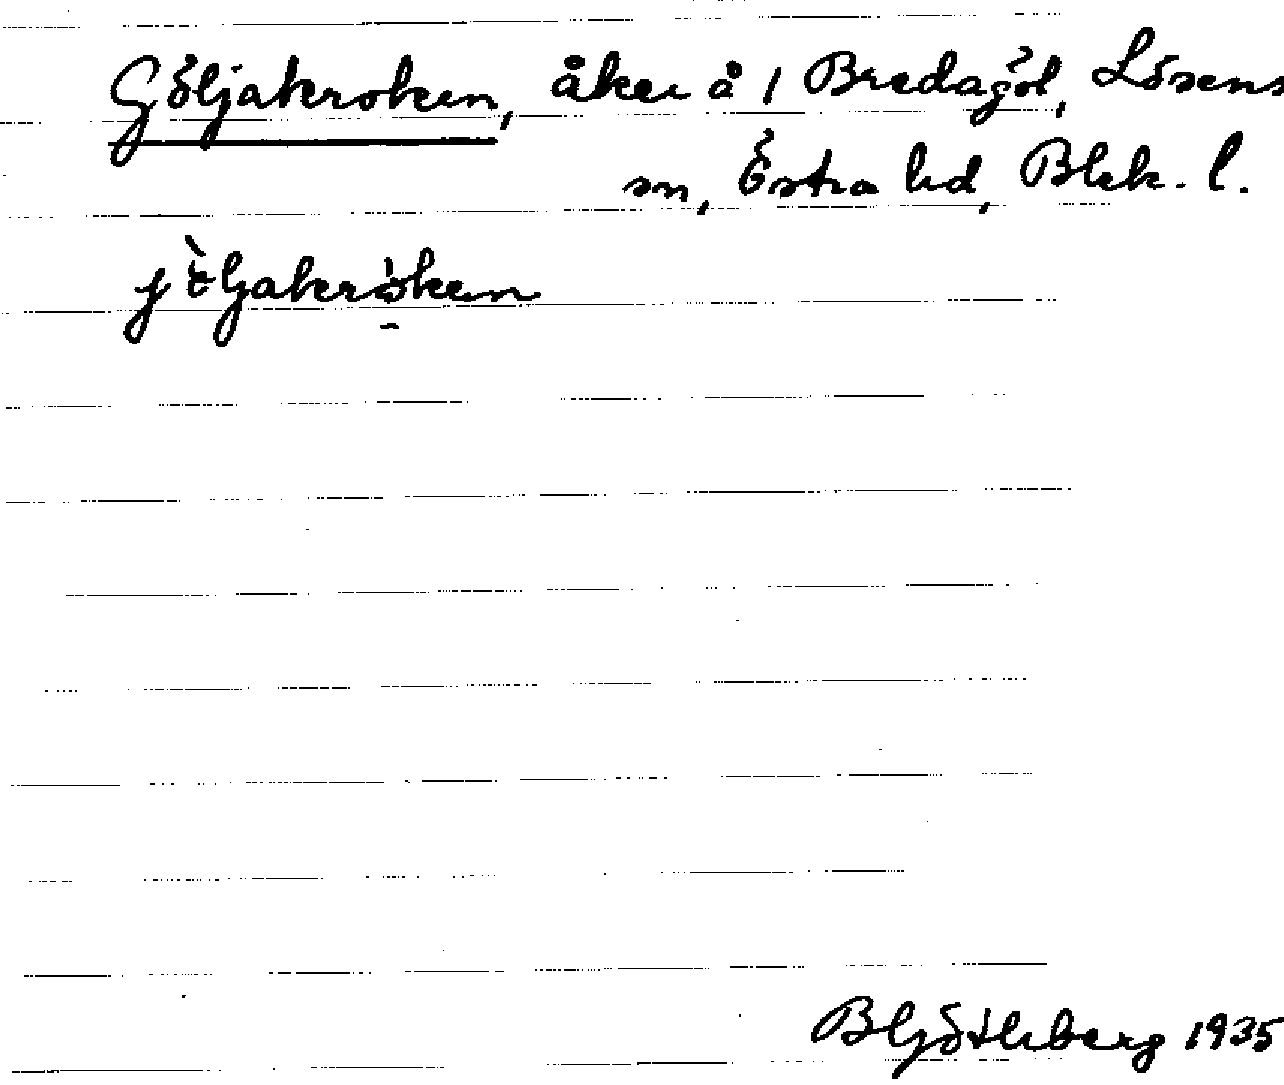 Göljakroken, åker å 1 Bredagöl, Lösens
sn, Östra hd, Blek. l.
BGötlberg 1935